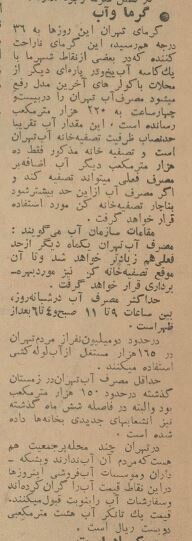 گرما وآب
گرمای تهران این روزها به ۳۶
درجه هم رسیده، این گرمای ناراحت
کننده که در بعضی از نقاط شهر ما با
یک کاسه آب یخ و در پاره‌ای دیگر از
محلات با کولر های آخرین مدل رفع
میشود مصرف آب تهران را در بیست و
چهار ساعت به ۲۲۰ هزار متر مکعب
رسانده است، این مقدار آب تقریبا
حد نصاب ظرفیت تصفیه خانه آب تهران
است و تصفیه خانه مذکور فقط ده
هزار متر مکعب دیگر آب اضافه بر
مصرف فعلی میتواند تصفیه کند و
اگر مصرف آب از این حد بیشتر شود
بناچار تصفیه خانه کن مورد استفاده
قرار خواهد گرفت.
مقامات سازمان آب میگویند:
مصرف آب تهران یکماه دیگر از حد
فعلی هم زیادتر خواهد شد و تا آن
موقع تصفیه خانه کن نیز مورد بهره-
برداری قرار خواهد گرفت.
حداکثر مصرف آب در شبانه روز،
بین ساعات ۹ تا ۱۱ صبح و ۴ تا ۶ بعداز
ظهر است.
در حدود دو میلیون نفر از مردم تهران
در ۱۶۵ هزار مستغل از آب لوله کشی
استفاده میکنند.
حداقل مصرف آب تهران در زمستان
گذشته در حدود ۱۵۰ هزار متر مکعب
بود والبته در فاصله شش ماه گذشته
نیز انشعابهای جدیدی بخانه‌ها داده
شده است.
در تهران چند محله پر جمعیت هم
هست که مردم آن آب ندارند و بشکه
داران وموسسات آب فروشی اینروزها
در این نقاط قیمت آب را گران کرده‌اند
وسفارشات آب را بنوبت قبول میکنند.
قیمت یک تانکر آب هشت متر مکعبی
دویست ریال است.